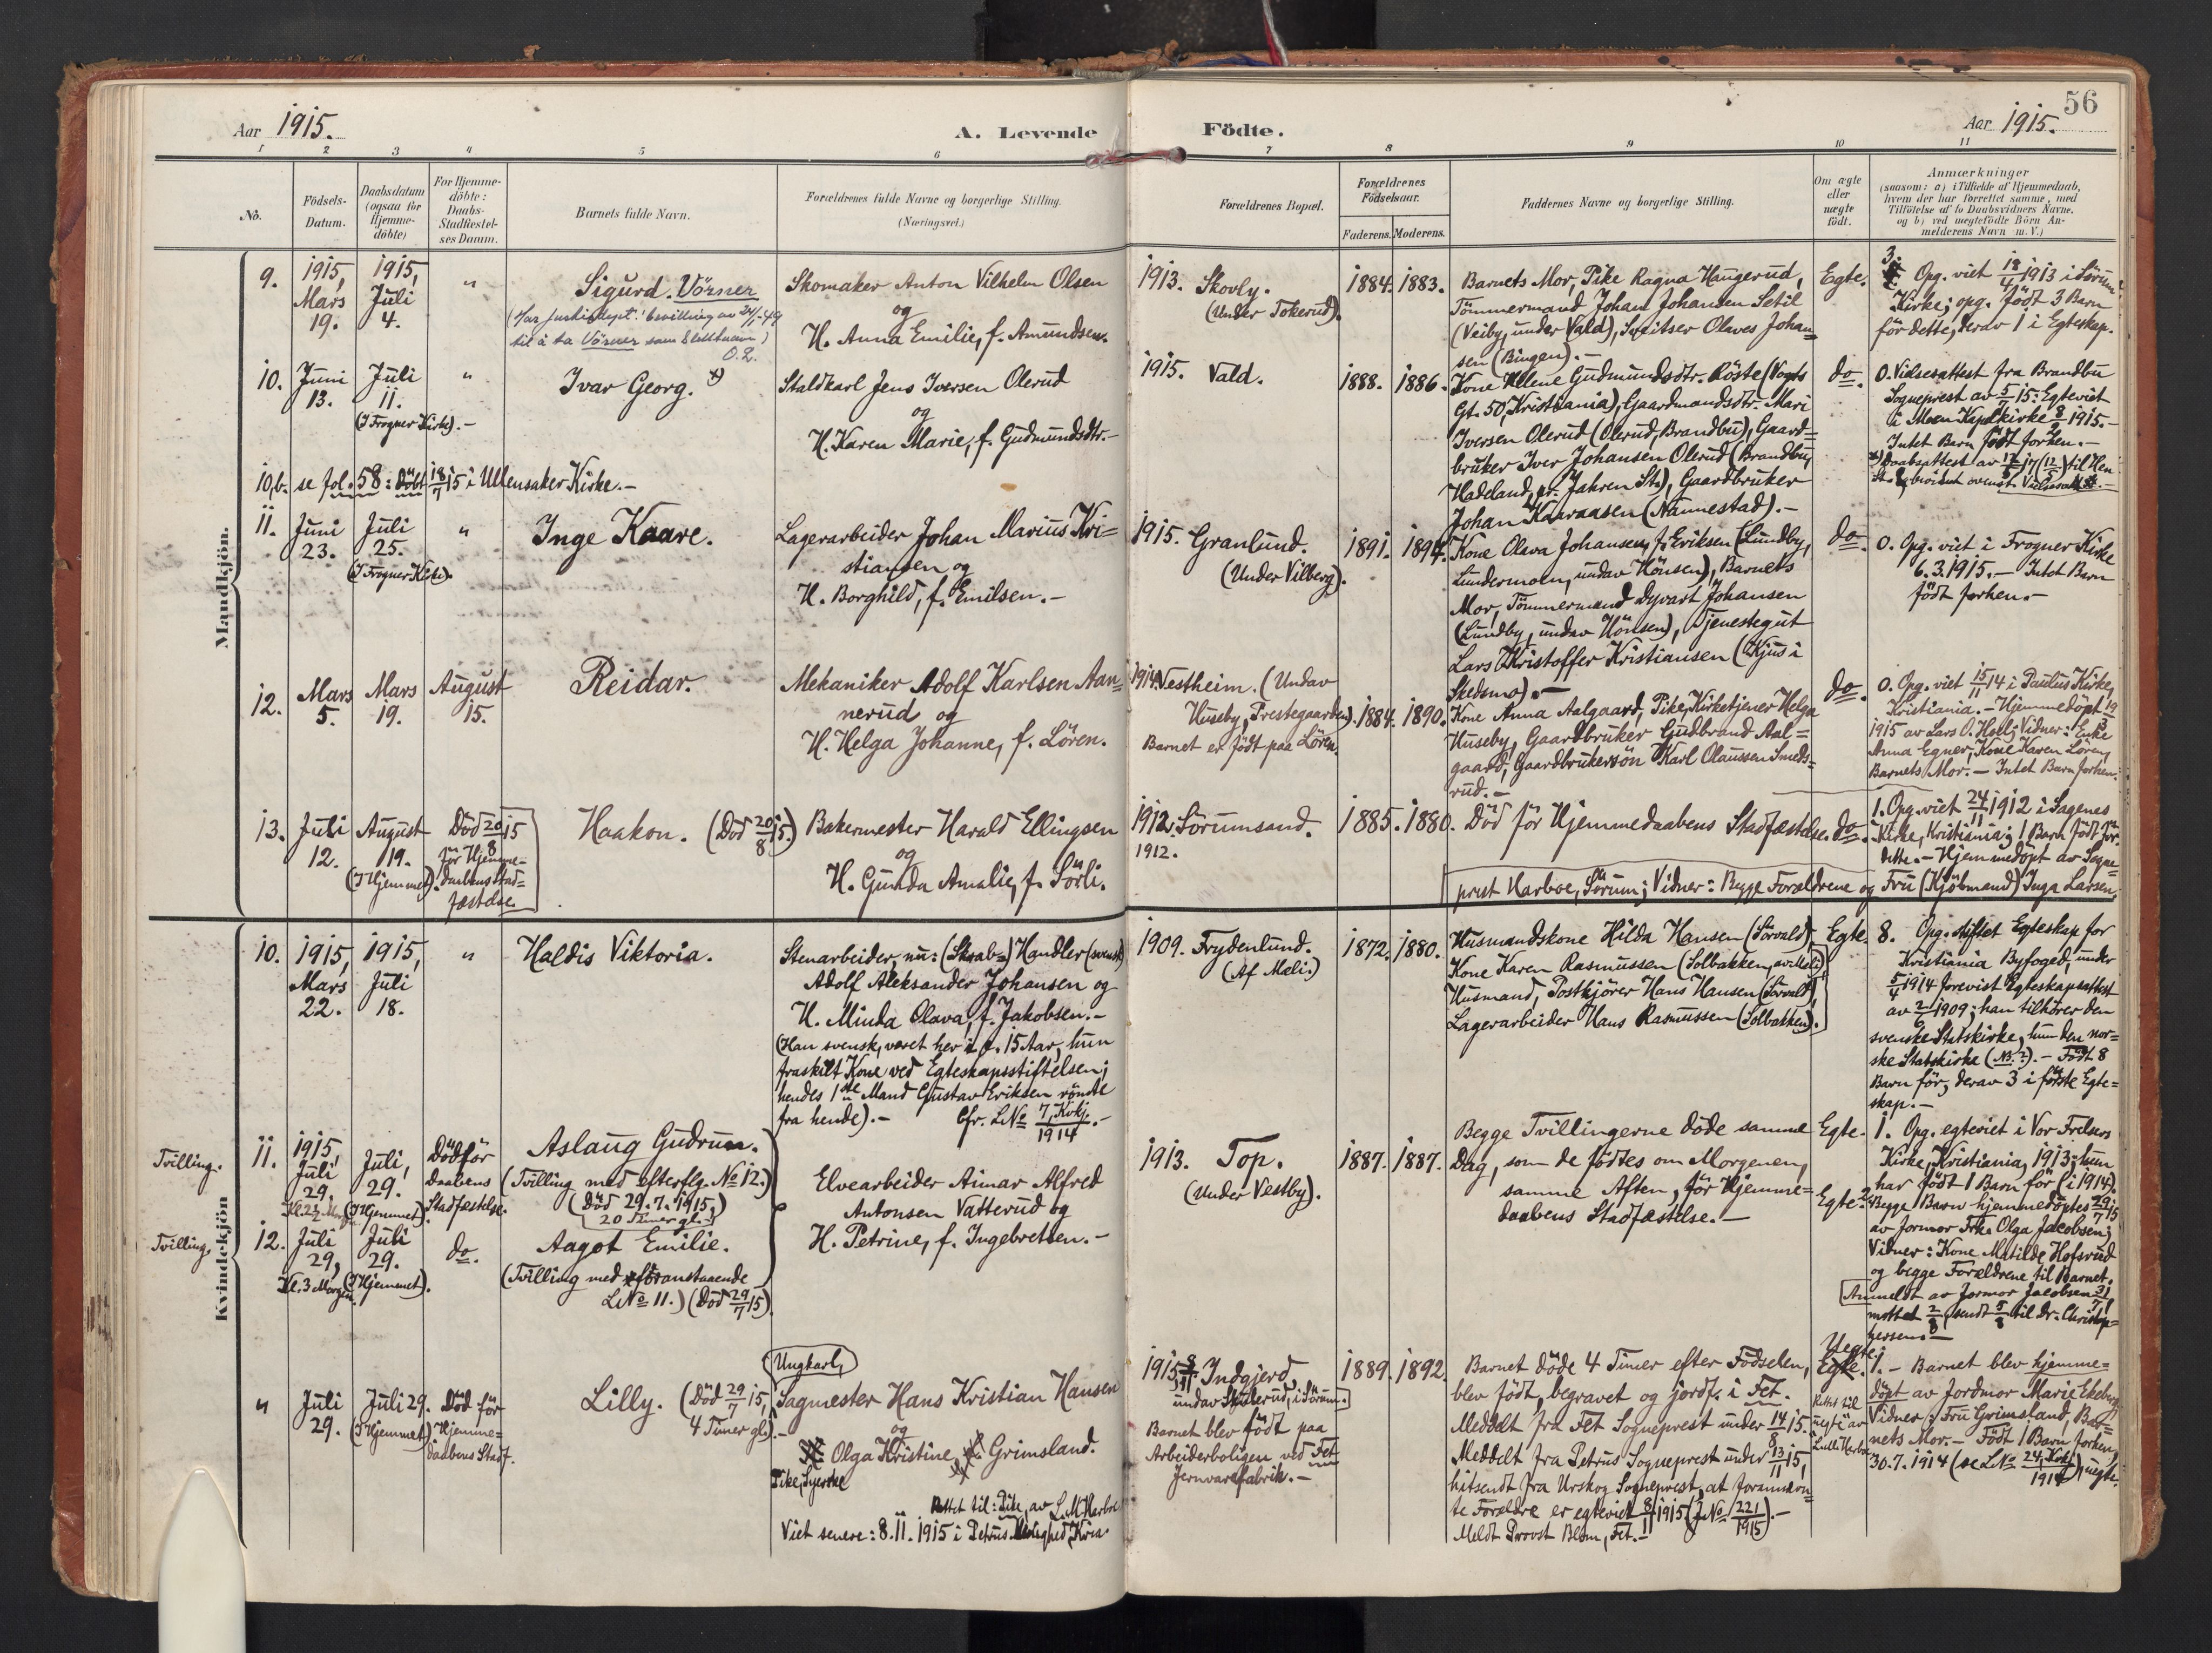 Aar 1915.
A. Levende
Födte.
56
Aar 1915.
1 2 3 4 5 6 7 8 9 10 11
No.
Födsels-
Datum.
Daabsdatum
(ogsaa for
Hjemme-
döbte)
For Hjemme-
döbte:
Daabs-
Stadfæstel-
ses Datum.
Barnets fulde Navn.
Forældrenes fulde Navne og borgerlige Stilling.
(Næringsvei.)
Forældrenes Bopæl.
Forældrenes
Födselsaar.
Faderens. Moderens.
Faddernes Navne og borgerlige Stilling.
Om ægte
eller
uægte
født.
Anmærkninger
(saasom: a) i Tilfælde af Hjemmedaab,
hvem der har forrettet samme, med
Tilføielse af to Daabsvidners Navne,
og b) ved uægtefødte Börn An-
melderens Navn m. V.)
Mandkjön.
9.
1915,
Mars
19.
1915,
Juli
4.
"
Sigurd. Vörner
(Har Justisdept.' bevilling av 24/1-49
til å ta Vörner som slektsnavn)
O.L.
Skomaker Anton Vilhelm Olsen
og
H. Anna Emilie, f. Amundsen.
1913. Skovly.
(Under Tokerud).
1884. 1883.
Barnets Mor, Pike Ragna Haugerud,
Tömmermand Johan Johansen Setil
(Veiby, under Vald), Sveitser Olaves Johan=
sen (Bingen). —
Egte.
3. Opg. viet 18/4 1913 i Sörum
Kirke; opg. født 3 Barn
för dette, derav 1 i Egteskap.
10.
Juni
13.
Juli
11.
(I Frogner Kirke). —
"
Ivar Georg. x)
Staldkarl Jens Iversen Olerud
og
H. Karen Marie, f. Gudmundsdtr. —
1915. Vald.
1888. 1886.
Kone Helene Gudmundsdtr. Röste (Vogts
Gt. 50, Kristiania), Gaardmandsdtr. Mari
Iversen Olerud (Olerud, Brandbu), Gaard=
bruker Iver Johansen Olerud (Brandbu,
Hadeland, pr. Jahren St.), Gaardbruker
Johan Kaaraasen (Nannestad). —
do.
0. Vielsesattest fra Brandbu
Sogneprest av 5/7 15: Egteviet
i Moen Kapelkirke 8/2 1915. —
Intet Barn født forhen. —
10,b. se fol. 58: Döbt 18/7 15 i Ullensaker Kirke. —
11.
Juni
23.
Juli
25.
(I Frogner Kirke).
"
Inge Kaare.
Lagerarbeider Johan Marius Kri=
stiansen og
H. Borghild, f. Emilsen. —
1915. Granlund.
(Under Vilberg).
1891. 1894.
Kone Olava Johansen, f. Eriksen (Lundby,
Lundermoen, undav Hönsen), Barnets
Mor, Tömmermand Dyvart Johansen
(Lundby, undav Hönsen), Tjenestegut
Lars Kristoffer Kristiansen (Kjus i
Skedsmo). —
do.
0. Opg. viet i Frogner Kirke
6.3.1915. — Intet Barn
født forhen. —
12.
Mars
5.
Mars
19.
August
15.
Reidar.
Mekaniker Adolf Karlsen Aan=
nerud og
H. Helga Johanne, f. Lören.
1914. Vestheim. (Undav
Huseby, Prestegaarden).
Barnet er født paa Lören.
1884. 1890.
Kone Anna Aalgaard, Pike, Kirketjener Helga
Huseby, Gaardbruker Gudbrand Aal=
gaard, Gaardbrukersön Karl Olaussen Smeds=
rud. —
do.
0. Opg. viet 15/11 14 i Paulus Kirke,
Kristiania. — Hjemmedöpt 19/3
1915 av Lars O. Holl; Vidner: Enke
Anna Egner, Kone Karen Lören,
Barnets Mor. — Intet Barn forhen.
13.
Juli
12.
August
19.
(I Hjemmet).
Död 20/8 15
för Hjemme-
daabens Stad=
fæstelse.
Haakon. (Död 20/8 15.)
Bakermester Harald Ellingsen
og
H. Gunda Amalie, f. Sörli.
1912. Sörumsand.
1912.
1885. 1880.
Död för Hjemmedaabens Stadfæstelse.
do.
1. Opg. viet 24/11 1912 i Sagenes
Kirke, Kristiania; 1 Barn født för
dette. — Hjemmedöpt av Sogne=
prest Harboe, Sörum; Vidner: Begge Forældrene og Fru (Kjöbmand) Inga Larsen.
Kvindekjön
10.
1915,
Mars
22.
1915,
Juli
18.
"
Haldis Viktoria.
Stenarbeider, nu: (Skrab=) Handler (svensk)
Adolf Aleksander Johansen og
H. Minda Olava, f. Jakobsen. —
(Han svensk, været her i c. 15 Aar, hun
fraskilt Kone ved Egteskapsstiftelsen;
hendes 1ste Mand Gustav Eriksen römte
fra hende). — Cfr. L№ 7, Kvkj. 1914. —
1909. Frydenlund.
(Af Mæli.)
1872. 1880.
Husmandskone Hilda Hansen (Sörvald),
Kone Karen Rasmussen (Solbakken, av Mæli),
Husmand, Postkjörer Hans Hansen (Sörvald),
Lagerarbeider Hans Rasmussen (Solbakken).
Egte.
8. Opg. stiftet Egteskap for
Kristiania Byfoged, under
5/4 1914 forevist Egteskapsattest
av 2/6 1909; han tilhörer den
svenske Statskirke, hun den nor=
ske Statskirke (NB. ?). — Født 8
Barn för, derav 3 i förste Egte=
skap. —
Tvilling.
11.
1915,
Juli
29.
Juli,
29.
(I Hjemmet).
Død før
Daabens
Stadfæstelse.
Aslaug Gudrun.
(Tvilling med efterflg. No 12.)
(Död 29.7.1915,)
20 Timer gl.
Elvearbeider Aimar Alfred
Antonsen Vatterud og
H. Petrine, f. Ingebretsen. —
1913. Top.
(Under Vestby).
1887. 1887.
Begge Tvillingerne döde samme
Dag, som de fødtes om Morgenen,
samme Aften, för Hjemme=
daabens Stadfæstelse. —
Egte.
1. Opg. egteviet i Vor Frelsers
Kirke, Kristiania, 1913; hun
har født 1 Barn för (i 1914).
Tvilling.
12.
Juli
29,
Kl. 3 Morgen.
Juli
29.
(I Hjemmet).
do.
Aagot Emilie.
(Tvilling med foranstaaende
L№ 11.) (Död 29/7 15).
Egte.
Begge Barn hjemmedöptes 29/7 15
av Jormor Frk. Olga Jacobsen;
Vidner: Kone Matilde Hofsrud
og begge Forældrene til Barnet.
Anmeldt av Jormor Jacobsen 31/7,
mottat 2/8, sendt 5/8 til Dr. Christop=
hersen. —
"
Juli
29.
Juli 29.
(I Hjemmet)
Död för
Hjemme=
daabens Stadf.
Lilly. (Död 29/7 15,
4 Timer gl.) —
Ungkarl,
Sagmester Hans Kristian Hansen
og
Olga Kristine, Grimsland.
Pike, Syerske
Rettet til: Pike, av L. M. Harboe
Viet senere: 8.11.1915 i Petrus Menighed, Kria.
1915 8/11 Indgjerd,
undav Skulerud, i Sörum.
Barnet blev født paa
Arbeiderboligen ved Fet
Jernvarefabrik. —
1889. 1892
Barnet döde 4 Timer efter Födselen,
blev født, begravet og jordf. i Fet.
Meddelt fra Fet Sogneprest under 14/8 15.
Meddelt fra Petrus Sogneprest under 13/11 15,
hitsendt fra Urskog Sogneprest, at forannævn=
te Forældre er egteviet 8/11 1915 (J№ 221/1915). —
Meldt Provst Blom, Fet. —
Uegte.
Egte.
Rettet til
uegte av
1. — Barnet blev hjemme=
döpt av Jordmor Marie Ekeberg;
Vidner: Fru Grimsland, Bar=
nets Mor. — Født 1 Barn forhen,
30.7.1914 (se L№ 24, Kvkj. 1914), uegte.